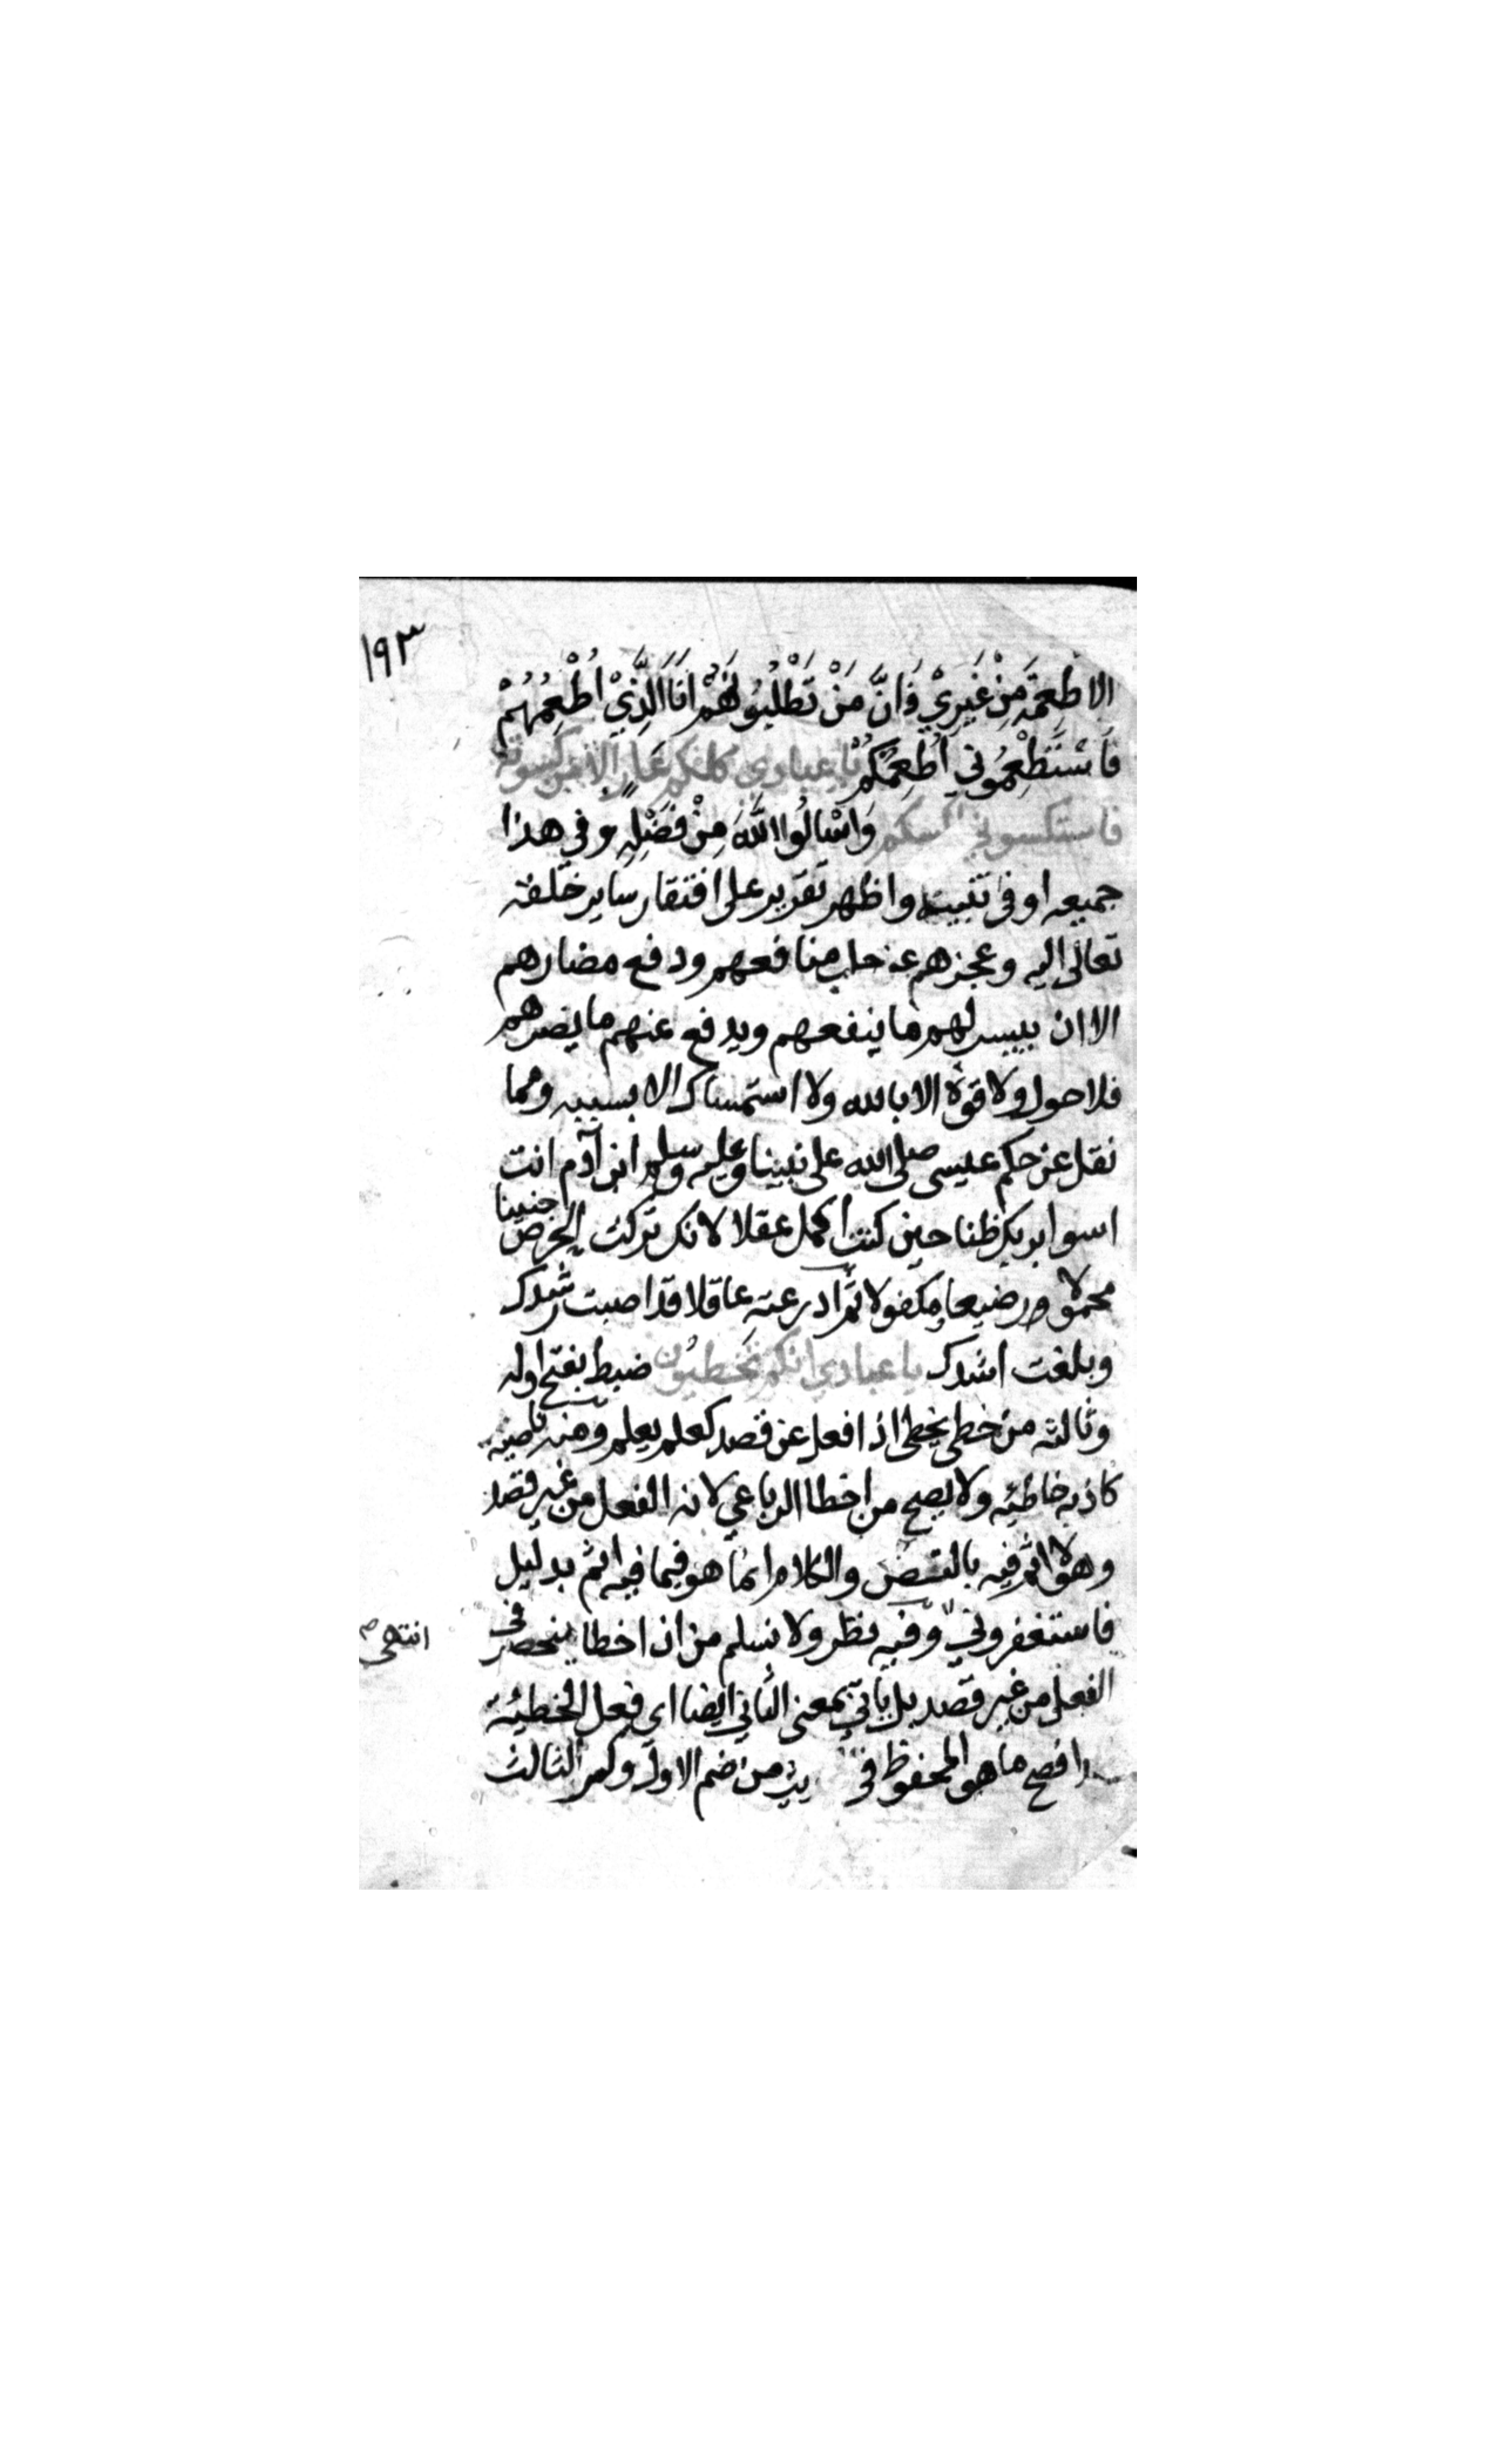 ١٩٣
الاطعمة مِنْ غَيرِيْ وَاَنَّ مَنْ تَطْلُبُونَهُمْ اَنَا الَّذِيْ اُطْعِمُهُمْ
فَاسْتَطْعِمُوني اُطْعِمْكُمْ يا عبادي كلكم عَارٍ الا من كسوته
فاستكسوني اكسكم وَاسْالُوا اللّٰهَ مِنْ فَضْلِهِ وفي هذا
جميعه اوفى تنبيه واظهر تقرير على افتقار ساير خلقه
تعالى اليه وعجزهم عن جلب منافعهم ودفع مضارهم
الا ان ييسر لهم ما ينفعهم ويدفع عنهم ما يضرهم
فلا حول ولا قوة الا بالله ولا استمساك الا بسببه ومما
نقل عن حكم عيسى صلى الله على نبينا وعليه وسلم ابن آدم انت
اسوا بربك ظنا حين كنت أكمل عقلا لانك تركت الحرص جنينا
محمولا ورضيعا ومكفولا ثم ادرعته عاقلا قد اصبت رشدك
وبلغت اشدك يا عبادي انكم تَخْطَئُون ضبط بفتح اوله
وثالثه من خطى يخطى اذا فعل عن قصد كعلم يعلم ومنه ناصية
كاذبه خاطئه ولا يصح من اخطا الرباعي لانه الفعل من غير قصد
وهو لا اثم فيه بالنص والكلام انما هو فيما فيه اثم بدليل
فاستغفروني وفيه نظر ولا نسلم من ان اخطا ينحصر في
انتهى صح
الفعل من غير قصد بل ياتي بمعنى الثاني ايضا اى فعل الخطيئة
افصح ما هو المحفوظ في من ضم الاول وكسر الثالث